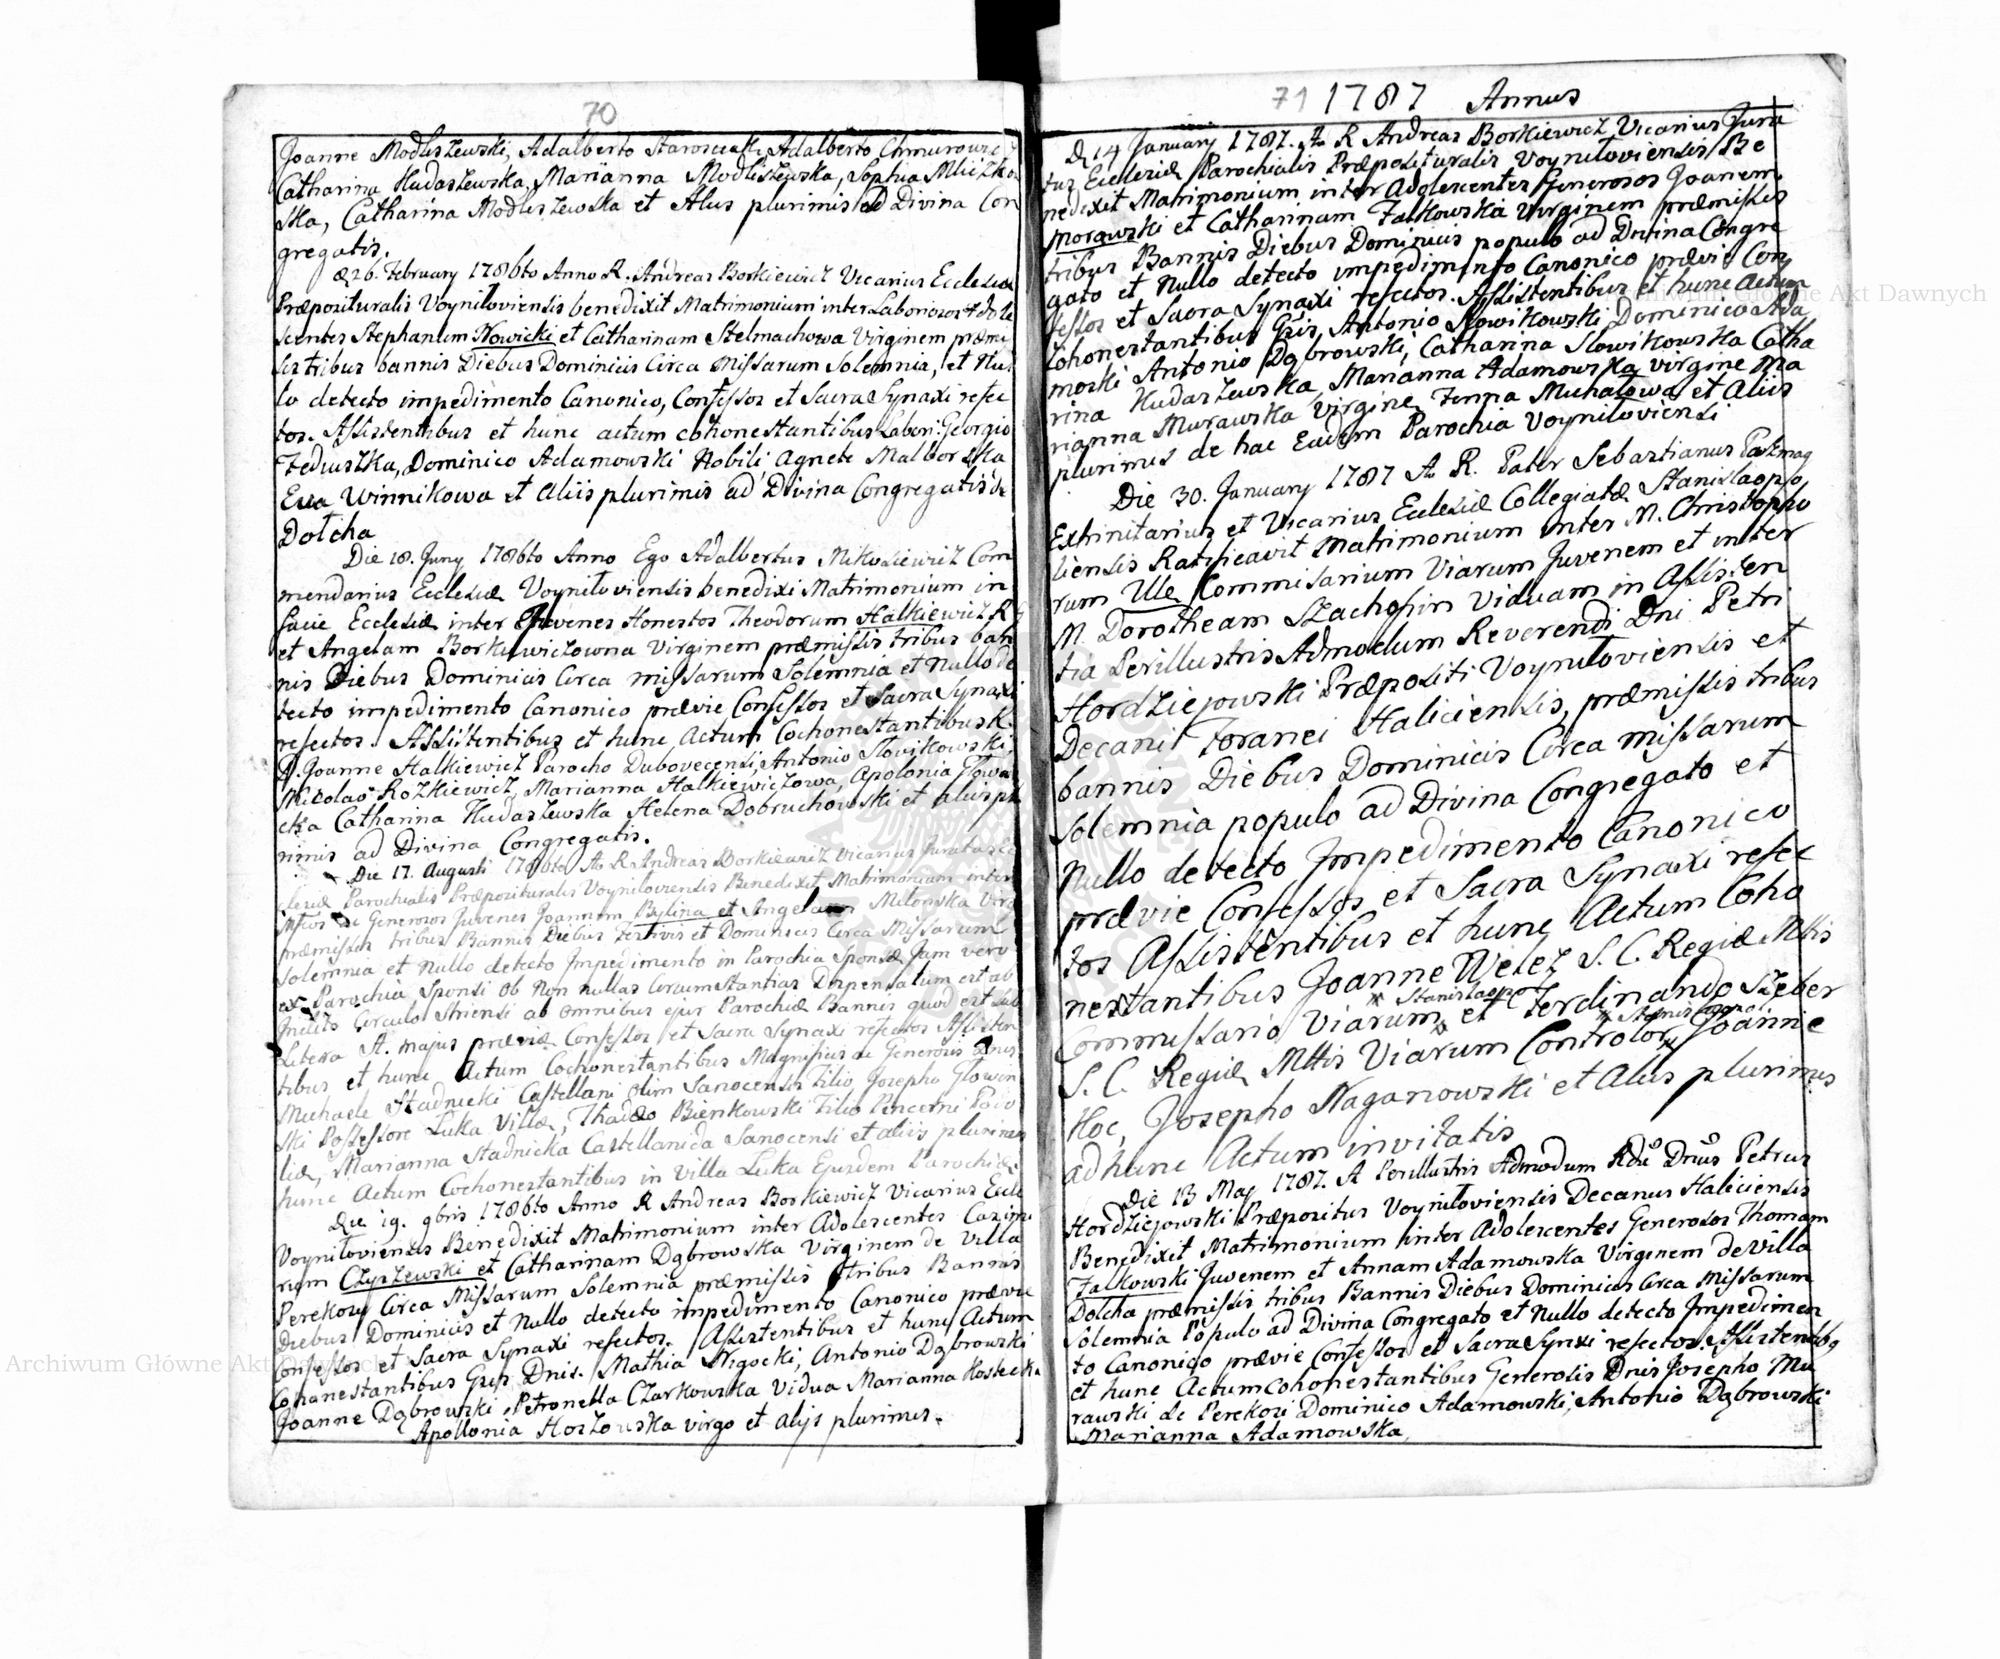 70
Joanne Modliszewski, Adalberto Starosciak, Adalberto Chmurowicz
Catharina Hudaszewska, Marianna Modliszewska, Sophia
ska, Catharina Modliszewska et Alus plurimis ad Divina Con
gregatis.
D 26. February 1786to Anno R. Andreas Borkiewicz Vicarius Ecclesiæ
Præposituralis Voyniloviensis benedixit Matrimonium inter Laboriosos Adole
scentes Stephanum Nowicki et Catharinam Stelmachowa Virginem præmi
sis tribus bannis Diebus Dominicis Circa Missarum Solemnia, et Nul
lo detecto impedimento Canonico, Confessos et Sacra Synaxi refec
tos. Assistentibus et hunc actum cohonestantibus Labori: Georgio
Fediuszka, Dominico Adamowski Nobili Agnete Malborska
Eva Winnikowa et Aliis plurimis ad Divina Congregatis de
Dolcha
Die 18. Juny 1786to Anno Ego Adalbertus Mikosiewicz Com
mendarius Ecclesiæ Voyniloviensis benedixi Matrimonium in
facie Ecclesiæ inter Juvenes Honestos Theodorum Halkiewicz
et Angelam Borkiewiczowna Virginem præmissis tribus ban
nis Diebus Dominicis Circa missarum Solemnia et Nullo De
tecto impedimento Canonico prævie Confessos et Sacra Synaxi
refectos. Assistentibus et hunc Actum Cochonestantibus R.
D. Joanne Halkiewicz Parocho Dubovecensi, Antonio Slovikowski,
Nicolao Rozkiewicz, Marianna Halkiewiczowa, Apolonia Glowa
cka Catharina Hudaszewska Helena Dobruchowski et aliis plu
rimis ad Divina Congregatis.
Die 17. Augusti 1786to A R Andreas Borkiewicz Vicarius Juratus Ec
clesiæ Parochialis Præposituralis Voyniloviensis Benedixit Matrimonium inter
Generosos Juvenes Joannem Bylina et Angelam Milowska Virg
præmissis tribus Bannis Diebus Festivis et Dominicis Circa Missarum
Solemnia et Nullo detecto Impedimento in Parochia Sponsæ Jam vero
ex Parochia Sponsi Ob Non nullas Circumstantias Dispensatum est ab
Inclito Circulo Striensi ab omnibus ejus Parochiæ Bannis quod est sub
Litera A. majus præviæ Confessos et Sacra Synaxi refectos Assisten
tibus et hunc Actum Cochonestantibus Magnificis ac Generosis Dnis
Michaele Stadnicki Castellani olim Sanocensis Filio, Josepho Glowin
ski Possessore Luka Villæ, Thadæo Bienkowski Filio Pincerni Podo
liæ, Marianna Stadnicka Castellanida Sanocensi et aliis plurimis
hunc Actum Cochonestantibus in Villa Luka Ejusdem Parochiæ.
Die 19. 9bris 1786to Anno R Andreas Borkiewicz Vicarius Eccle
Voyniloviensis Benedixit Matrimonium inter Adolescentes Casimi
rum Czyszewski et Catharinam Dąbrowska Virginem de Villa
Perekosy Circa Missarum Solemnia præmissis tribus Bannis
Diebus Dominicis et Nullo detecto impedimento Canonico prævie
Confessos et Sacra Synaxi refectos. Assistentibus et hunc Actum
Cohanestantibus Gnis Dnis. Mathia Nigocki, Antonio Dąbrowski
Joanne Dąbrowski, Petronella Czarkowska Vidua Marianna
Apollonia Hoszowska virgo et alijs plurimis.
71 1787 Annus
D 14 January 1787. A R Andreas Borkiewicz Vicarius Jura
tus Ecclesiæ Parochialis Præposituralis Voyniloviensis Be
nedixit Matrimonium inter Adolescentes Generosos Joanem
Morawski et Catharinam Falkowska Virginem præmissis
tribus Bannis Diebus Dominicis populo ad Divina Congre
gato et Nullo detecto impedimento Canonico prævie Con
fessos et Sacra Synaxi refectos. Assistentibus et hunc Actum
Cohonestantibus Gsis, Antonio Slowikowski, Dominico Ada
mowski Antonio Dąbrowski, Catharina Slowikowska Catha
rina Hudaszewska, Marianna Adamowska virgine Ma
rianna Murawska Virgine, Fenna Michalowa et Aliis
plurimis de hac Eadem Parochia Voyniloviensi
Die 30. January 1787 A R. Pater Sebastianus
Extrinitarius et Vicarius Ecclesiæ Collegiatæ Stanislaopo
liensis Ratificavit Matrimonium inter M. Christopho
rum Ule Commisarium Viarum Juvenem et inter
M. Dorotheam Szachosin Viduam in Assisten
tia Perillustris Admodum Reverendi Dni Petri
Hordziejowski Præpositi Voyniloviensis et
Decani Foranei Haliciensis, præmissis tribus
bannis Diebus Dominicis Circa missarum
Solemnia populo ad Divina Congregato et
Nullo detecto Impedimento Canonico
prævie Confessos et Sacra Synaxi refec
tos Assistentibus et hunc Actum Coho
nestantibus Joanne Welez S. C. Regiæ Mttis
Stanislaopol
Commissario Viarum et Ferdinando Szeber
Stanislaopol
S. C. Regiæ Mttis Viarum Controlor, Joanne
Hoc, Josepho Naganowski et Aliis plurimis
ad hunc Actum invitatis
Die 13 May 1787. A Perillustris Admodum Rdus Dnus Petrus
Hordziejowski Præpositus Voyniloviensis Decanus Haliciensis
Benedixit Matrimonium inter Adolescentes Generosos Thomam
Falkowski Juvenem et Annam Adamowska Virginem de Villa
Dolcha præmissis tribus Bannis Diebus Dominicis Circa Missarum
Solemnia Populo ad Divina Congregato et Nullo detecto Impedimen
to Canonico prævie Confessos et Sacra Synxi refectos. Assistentibq
et hunc Actum cohonestantibus Generosis Dnis Josepho Mu
rawski de Perekosi Dominico Adamowski, Antonio Dąbrowski
Marianna Adamowska,
Archiwum Główne Akt Dawnych
Archiwum Główne Akt Dawnych